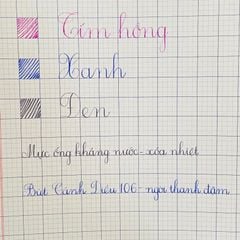 Tím hồng
Xanh
Đen
Mực ống kháng nước - xóa nhiệt
Bút Cánh Diều 106 - ngòi thanh đậm